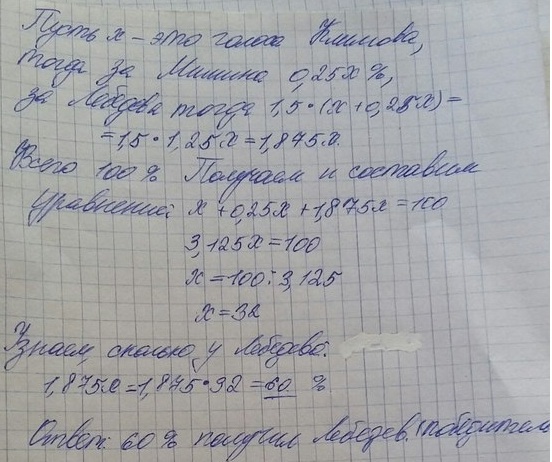 Пусть х - это голоса Климова,
тогда за Мишина 0,25х %,
за Лебедева тогда 1,5·(х+0,25х)=
=1,5·1,25х=1,875х.
Всего 100% Получаем и составим
уравнение: х+0,25х+1,875х=100
3,125х=100
х=100:3,125
х=32
Узнаем, сколько у Лебедева:
1,875х=1,875·32=60 %
Ответ: 60% получил Лебедев. (победитель